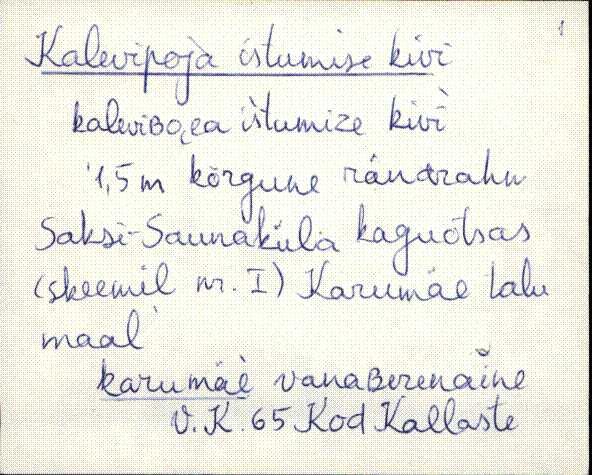 1
Kalevipoja istumise kivi
kaleviʙoɛa i̮stumize kivì
1,5 m kõrgune rändrahn
Saksi-Saunaküla kaguotsas
(skeemil nr. I) Karumäe talu
maal
karumäè vanaʙerenaĭne
V. K. 65 Kod Kallaste